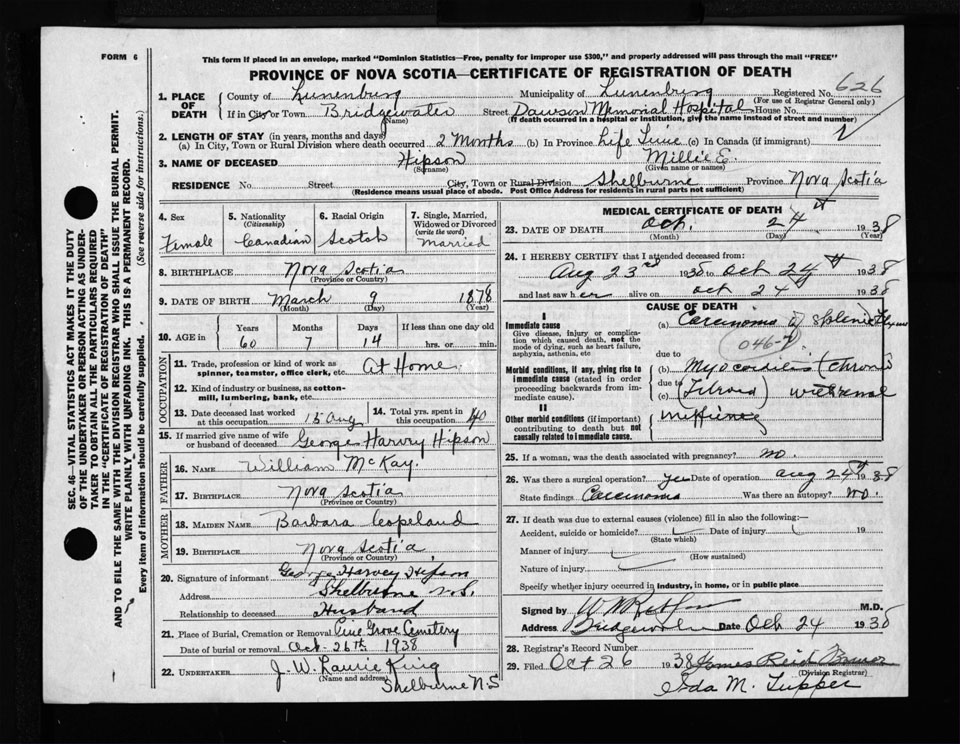 FORM 6
This form if placed in an envelope, marked "Dominion Statistics—Free, penalty for improper use $300," and properly addressed will pass through the mail "FREE"
PROVINCE OF NOVA SCOTIA—CERTIFICATE OF REGISTRATION OF DEATH
SEC. 46—VITAL STATISTICS ACT MAKES IT THE DUTY
OF THE UNDERTAKER OR PERSON ACTING AS UNDER-
TAKER TO OBTAIN ALL THE PARTICULARS REQUIRED
IN THE "CERTIFICATE OF REGISTRATION OF DEATH"
AND TO FILE THE SAME WITH THE DIVISION REGISTRAR WHO SHALL ISSUE THE BURIAL PERMIT.
WRITE PLAINLY WITH UNFADING INK. THIS IS A PERMANENT RECORD.
Every item of information should be carefully supplied. (See reverse side for instructions.)
1. PLACE OF DEATH County of Lunenburg Municipality of Lunenburg Registered No. 626
(For use of Registrar General only)
If in City or Town Bridgewater Street Dawson Memorial Hospital House No.
(Name) (If death occurred in a hospital or institution, give the name instead of street and number)
2. LENGTH OF STAY (in years, months and days)
(a) In City, Town or Rural Division where death occurred 2 Months (b) In Province Life Time (c) In Canada (if immigrant)
3. NAME OF DECEASED Hipson Millie E.
(Surname) (Given name or names)
RESIDENCE No. Street City, Town or Rural Division Shelburne Province Nova Scotia
(Residence means usual place of abode. Post Office Address for residents in rural parts not sufficient)
4. Sex 5. Nationality (Citizenship) 6. Racial Origin 7. Single, Married, Widowed or Divorced (write the word)
Female Canadian Scotch Married
8. BIRTHPLACE Nova Scotia
(Province or Country)
9. DATE OF BIRTH March 9 1878
(Month) (Day) (Year)
10. AGE in Years Months Days If less than one day
60 7 14 hrs. or min.
OCCUPATION
11. Trade, profession or kind of work as spinner, teamster, office clerk, etc. At Home
12. Kind of industry or business, as cotton-mill, lumbering, bank, etc.
13. Date deceased last worked at this occupation 15 Aug 14. Total yrs. spent in this occupation 40
15. If married give name of wife or husband of deceased George Harvey Hipson
FATHER
16. NAME William McKay
17. BIRTHPLACE Nova Scotia
(Province or Country)
MOTHER
18. MAIDEN NAME Barbara Copeland
19. BIRTHPLACE Nova Scotia
(Province or Country)
20. Signature of informant George Harvey Hipson
Address Shelburne N.S.
Relationship to deceased Husband
21. Place of Burial, Cremation or Removal Pine Grove Cemetery
Date of burial or removal Oct-26th 1938
22. UNDERTAKER J. W. Laurie King
(Name and address) Shelburne N.S
MEDICAL CERTIFICATE OF DEATH
23. DATE OF DEATH Oct. 24th 1938
(Month) (Day) (Year)
24. I HEREBY CERTIFY that I attended deceased from:
Aug 23rd 1938 to Oct 24th 1938
and last saw her alive on Oct 24 1938
CAUSE OF DEATH
I
Immediate cause
Give disease, injury or complication which caused death, not the mode of dying, such as heart failure, asphyxia, asthenia, etc
(a) Carcinoma of Splenic Flexure
046-
due to
Morbid conditions, if any, giving rise to immediate cause (stated in order proceeding backwards from immediate cause).
(b) Myocarditis (chronic)
due to
(c)
II
Other morbid conditions (if important) contributing to death but not causally related to immediate cause.
25. If a woman, was the death associated with pregnancy? no.
26. Was there a surgical operation? yes Date of operation Aug 24th 1938
State findings Carcinoma Was there an autopsy? no.
27. If death was due to external causes (violence) fill in also the following:—
Accident, suicide or homicide? Date of injury 19
(State which)
Manner of injury
(How sustained)
Nature of injury
Specify whether injury occurred in industry, in home, or in public place
Signed by M.D.
Address Bridgewater Date Oct 24 1938
28. Registrar's Record Number
29. Filed Oct 26 1938
(Division Registrar)
Ida M. Tupper